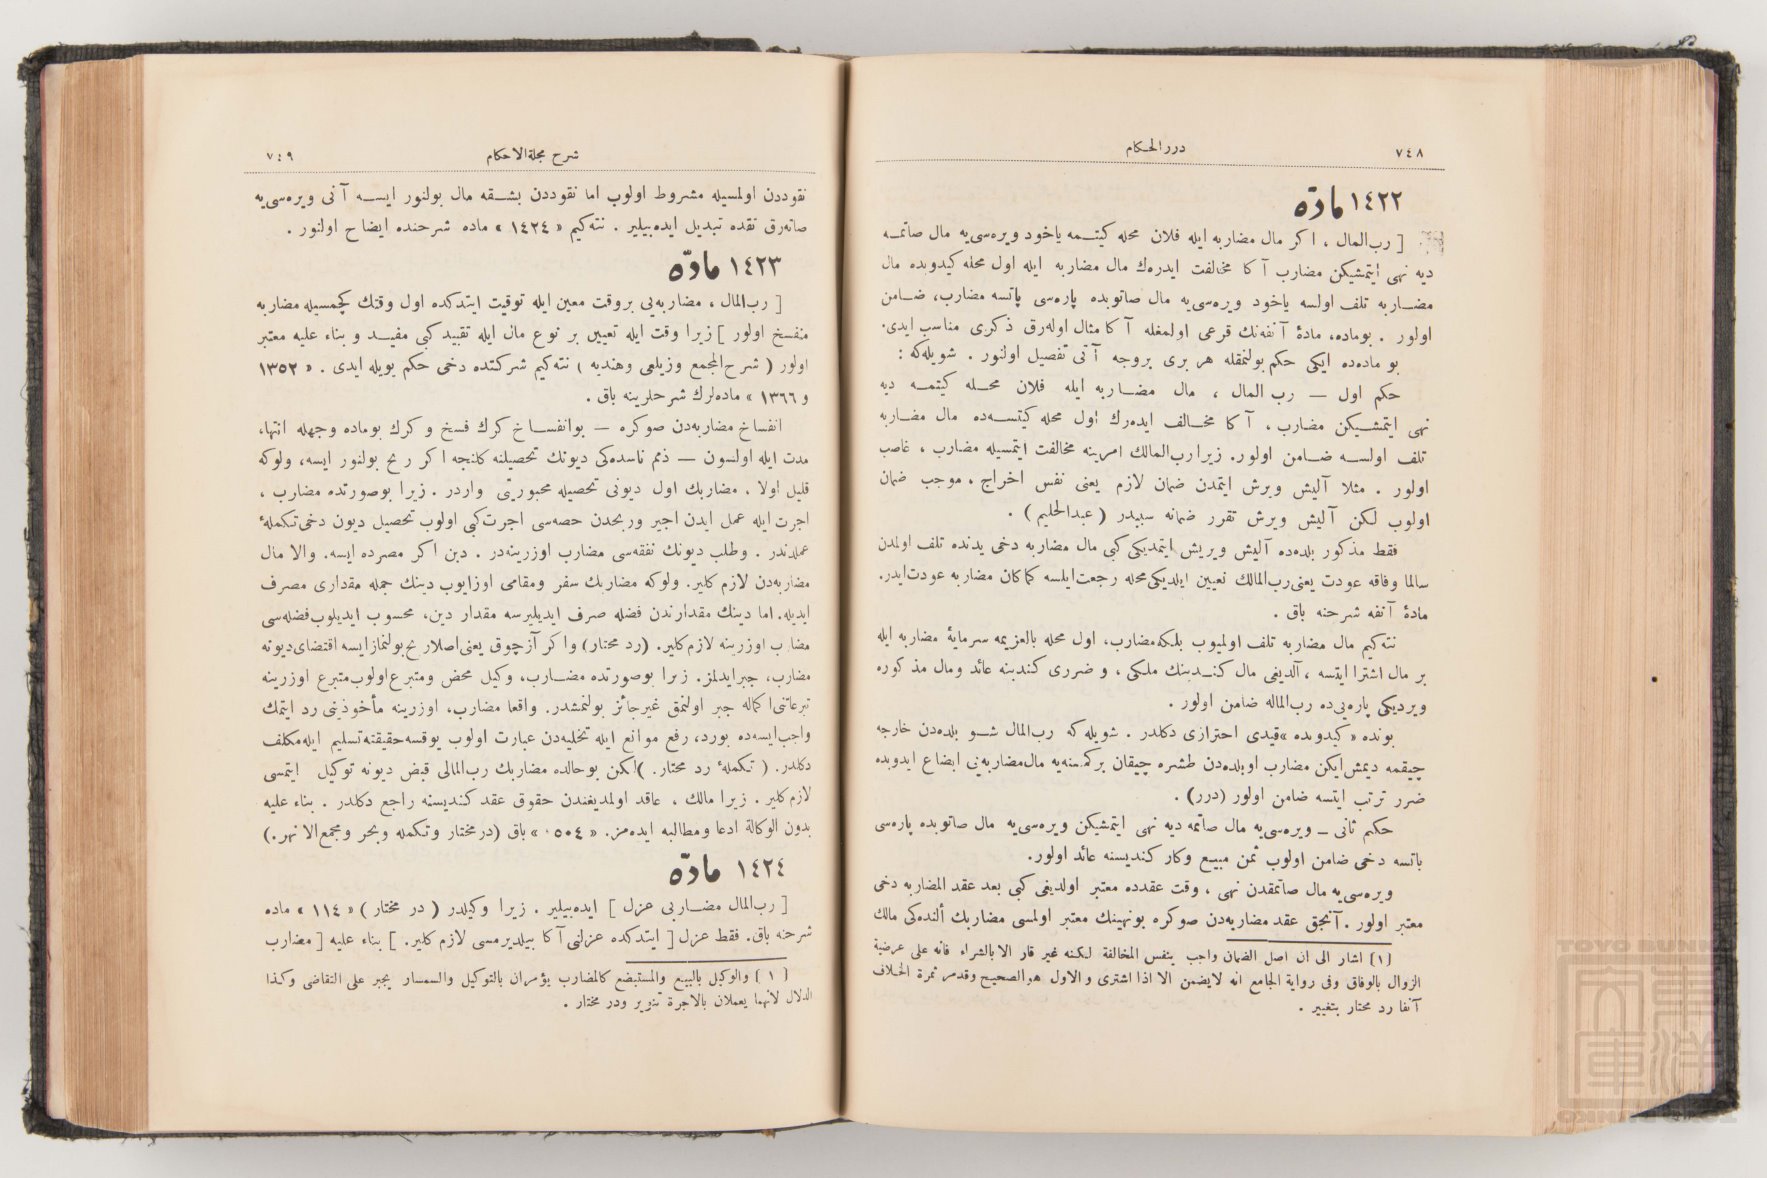 ٧٤٨
درر الحكام
١٤٢٢ مادّه
[ رب‌المال ، اكر مال مضاربه ايله فلان محله كيتــمه ياخود ويره‌سی‌يه مال صاتمــه
ديه نهی ايتمشيكن مضارب آ كا مخالفت ايدرەك مال مضاربه ايله اول محله كيدوبده مال
مضــاربه تلف اولسه ياخود ويره‌سی‌يه مال صاتوبده پاره‌سی پاتسه مضارب، ضــامن
اولور . بوماده، مادۀ آنفه‌نك فرعی اولمغله آ كا مثال اوله‌رق ذكری مناسب ايدی.
بو ماده‌ده ايكی حكم بولنمقله هر بری بروجه آتی تفصيل اولنور . شويله‌كه :
حكم اول — رب المال ، مال مضــاربه ايله فلان محــله كيتمــه ديه
نهی ايتمشــيكن مضارب ، آ كا مخــالف ايده‌رك اول محله كيتســه‌ده مال مضــاربه
تلف اولســه ضــامن اولور. زيرا رب‌المالك امرينه مخالفت ايتمسيله مضارب ، غاصب
اولور . مثلا آليش ويرش ايتمدن ضمان لازم يعنی نفس اخراج ، موجب ضمان
اولوب لكن آليش ويرش تقرر ضمانه سبيدر ( عبدالحليم ) .
فقط مذكور بلده‌ده آليش ويريش ايتمديكی كبی مال مضاربه دخی يدنده تلف اولمدن
سالما وفاقه عودت يعنی رب‌المالك تعيين ايلديكی‌محله رجعت‌ايلسه كماكان مضاربه عودت‌ايدر.
مادۀ آنفه شرحنه باق .
نته‌كيم مال مضاربه تلف اولميوب بلكه‌مضارب، اول محله بالعزيمه سرمايۀ مضاربه ايله
بر مال اشترا ايتسه ، آلديغی مال كنــدينك ملكی ، و ضرری كندينه عائد ومال مذ كوره
ويرديكی پاره‌يی‌ده رب‌الماله ضامن اولور .
بونده « كيدوبده »قيدی احترازی دكلدر . شويله كه رب‌المال شــو بلده‌دن خارجه
چيقمه ديمش‌ايكن مضارب اوبلده‌دن طشره چيقان بركمسنه‌يه مال‌مضاربه‌يی ابضاع ايدوبده
ضرر ترتب ايتسه ضامن اولور (درر) .
حكم ثانی ــ ويره‌سی‌يه مال صاتمه ديه نهی ايتمشيكن ويره‌سی‌يه مال صاتوبده پاره‌سی
باتسه دخی ضامن اولوب ثمن مبيع وكار كنديسنه عائد اولور.
ويره‌سی‌يه مال صاتمقدن نهی ، وقت عقدده معتبر اولديغی كبی بعد عقد المضاربه دخی
معتبر اولور . آنجق عقد مضاربه‌دن صوكره بونهينك معتبر اولمسی مضاربك ألنده‌كی مالك
(١) اشار الی ان اصل الضمان واجب بنفس المخالفة لـكنه غير قار الا بالشراء فانه علی عرضية
الزوال بالوفاق وفی رواية الجامع انه لايضمن الا اذا اشتری و الاول هو الصحيح وقدمر ثمرة الخلاف
آنفا رد محتار بتغيير .
شرح مجلةالاحكام
٧٤٩
نقوددن اولمسيله مشروط اولوب اما نقوددن بشــقه مال بولنور ايســه آ نی ويره‌سی‌يه
صاته‌رق نقده تبديل ايده‌بيلير . نته‌كيم « ١٤٢٤ » ماده شرحنده ايضاح اولنور .
١٤٢٣ مادّه
[ رب‌المال ، مضاربه‌يی بروقت معين ايله توقيت ايتدكده اول وقتك كچمسيله مضاربه
منفسخ اولور ] زيرا وقت ايله تعيين بر نوع مال ايله تقييد كبی مفيــد و بناء عليه معتبر
اولور ( شرح‌المجمع وزيلعی وهنديه ) نته‌كيم شركتده دخی حكم بويله ايدی . « ١٣٥٢
و ١٣٦٦ » ماده‌لرك شرحلرينه باق .
انفساخ مضاربه‌دن صوكره — بوانفســاخ كرك فسخ و كرك بوماده وجهله انتهاء
مدت ايله اولسون — ذمم ناسده‌كی ديونك تحصيلنه كلنجه اكر ربح بولنور ايسه، ولوكه
قليل اولا . مضاربك اول ديونی تحصيله مجبوريتی واردر . زيرا بوصورتده مضارب ،
اجرت ايله عمل ايدن اجير وربحدن حصه‌سی اجرت‌كبی اولوب تحصيل ديون دخی‌تكملۀ
عملدندر . وطلب ديونك نفقه‌سی مضارب اوزرينه‌در . دين اكر مصرده ايسه. والا مال
مضاربه‌دن لازم كلير. ولوكه مضاربك سفر ومقامی اوزايوب دينك جمله مقداری مصرف
ايديله. اما دينك مقدارندن فضله صرف ايديلیرسه مقدار دين، محسوب ايديلوب‌فضله‌سی
مضارب اوزرينه لازم‌كلير. (رد محتار) واكر آزچوق يعنی‌اصلا ربح‌بولنمازايسه اقتضای‌ديونه
مضارب، جبرايدلمز. زيرا بوصورتده مضــارب، وكيل محض ومتبرع‌اولوب‌متبرع اوزرينه
تبرعاتنی‌ا كماله جبر اولنمق غيرجائز بولنمشدر. واقعا مضارب، اوزرينه مأخوذينی رد ايتمك
واجب‌ايسه‌ده بورد، رفع موانع ايله تخليه‌دن عبارت اولوب يوقسه‌حقيقةتسليم ايله‌مكلف
دكلدر. ( تكملۀ رد محتار. )لكن بوحالده مضاربك رب‌المالی قبض ديونه توكيل ايتمسی
لازم كلير . زيرا مالك ، عاقد اولمديغندن حقوق عقد كنديسنه راجع دكلدر . بناء عليه
بدون الوكالة ادعا ومطالبه ايده‌مز. « ١٥٠٤ » باق (درمختار وتكمله وبحر ومجمع‌الانهر.)
١٤٢٤ مادّه
[ رب‌المال مضــاربی عزل ] ايده‌بيلير . زيرا وكيلدر ( در مختار ) « ١١٤ » ماده
شرحنه باق. فقط عزل [ ايتدكده عزلنی آكا بيلديرمسی لازم كلير. ] بناء عليه [ مضارب
( ١ ) والوكيل بالبيع والمستبضع كالمضارب يؤمران بالتوكيل والسمسار يجبر علی التقاضی وكذا
الدلال لأنهما يعملان بالاجرة تنوير ودر مختار .